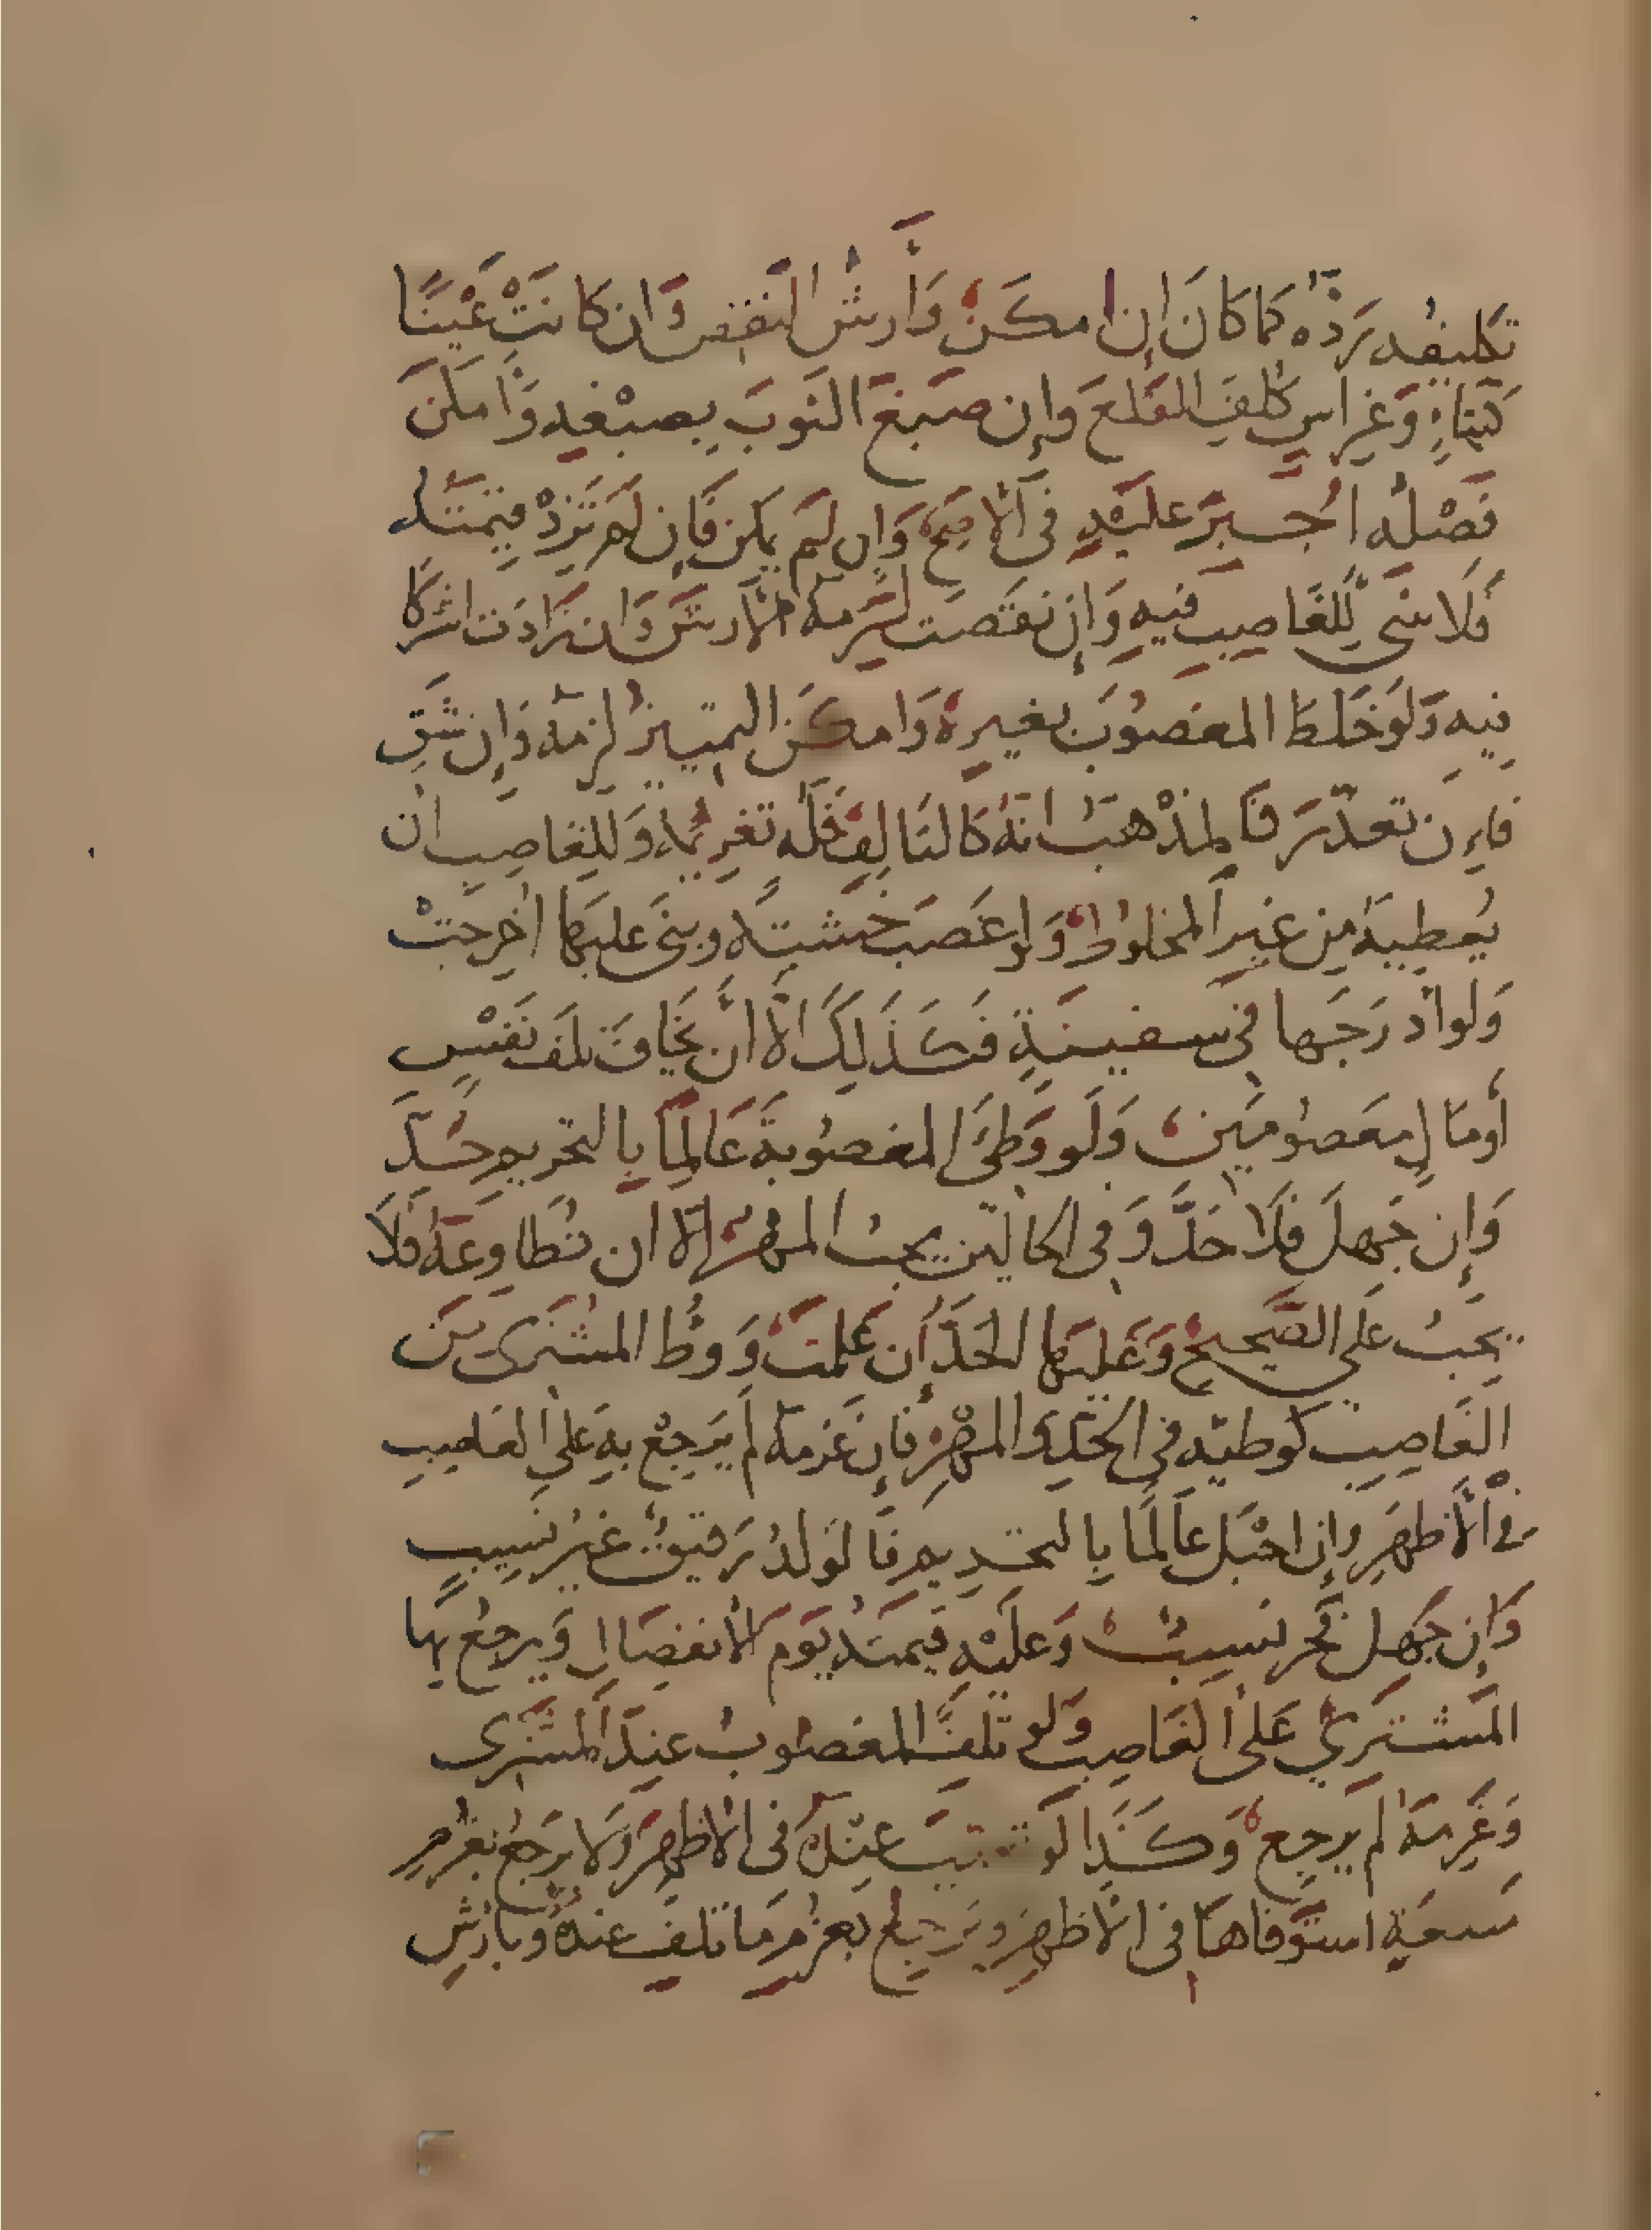 تكليفُه رَدَّهُ كما كانَ إن امكَنَ وَأَرْشُ النقصِ وَان كانَتْ عَيْنًا
كَبِنَاءٍ وَغِراسٍ كُلِّفَ القَلعَ وإن صَبغَ الثوبَ بِصبْغِهِ وَامكنَ
فَصْلُه اُجْبِرَ عليْهِ في الأصَحِّ وَإن لَم يمكن فَإن لم تَزِدْ قيمَتُهُ
فَلا شَي لِلغَاصِبِ فيهِ وَإن نقَصَت لَزِمهُ الأرشُ وَان زَادَت اشْتركا
فيهِ وَلَو خَلطَ المغصُوبَ بغيرِهِ وَامكَنَ التمييزُ لزِمهُ وَإن شَقّ
فَإِن تعذّرَ فَالمذْهبُ انهُ كالتَالِفِ فَلَه تغرِيمُه وَلِلغاصِبِ أن
يُعطِيَهُ مِن غَيرِ المخلوطِ وَلو غصَبَ خَشبَةً وبنَى عليهَا اُخرِجَتْ
وَلو ادرَجَها في سَفينَةٍ فَكَذَلِكَ الَّا أن يخَافَ تلَفَ نَفْسٍ
أومَالٍ معصُومَينِ وَلَو وَطِئَ المغصُوبةَ عَالِمًا بِالتحريمِ حُدَّ
وَإن جَهلَ فَلَا حَدَّ وَفي الحَالَينِ يجبُ المهرُ إلَّا ان تُطَاوِعَهُ فَلَا
يجَبُ عَلى الصَّحيحِ وَعَليهَا الحَدُّ إن عَلمَت وَوَطْءُ المشتَرى مِنَ
الغَاصِبِ كوطئِه في الحَدِّ والمهرِ فَإن غَرمَهُ لَم يَرجِعْ بِهِ عَلى الغَاصِبِ
في الأَظهَرِ وإن احْبَل عَالِمًا بِالتحريمِ فَالوَلدُ رَقيقٌ غيرُ نَسِيبٍ
وَإن جَهِلَ فَحُر نسِيبٌ وَعلَيْهِ قيمَتُه يَومَ الانفِصَالِ وَيرجعُ بِهَا
المُشترِي عَلى الغَاصِبِ وَلو تَلِفَ المغصُوبُ عندَ المشترى
وَغَرِمَهُ لم يرجِع وَكَذَا لَو تعَيَّبَ عندَهُ في الأظهَرِ وَلا يَرجَعُ بغُرمِ
منفعَةٍ استَوفاهَا في الأظهِرِ وَيَرجعُ بغُرمِ مَا تلفَ عندَهُ وبأرشِ